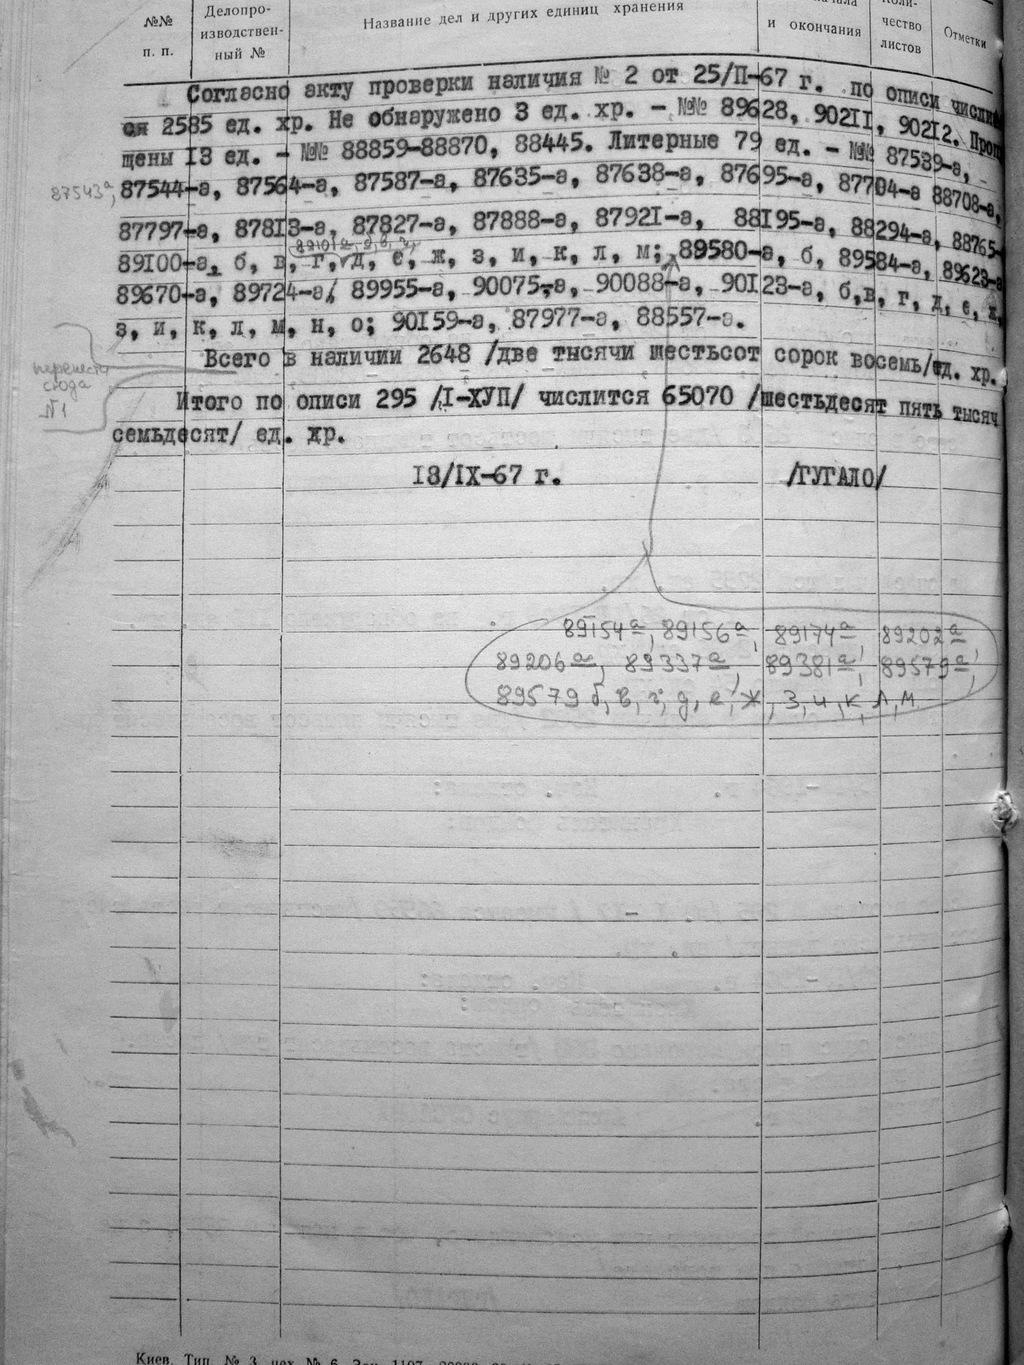 №№
п. п.
Делопро-
изводствен-
ный №
Название дел и других единиц хранения
и окончания
чество
листов
Отметки
Согласно акту проверки наличия № 2 от 25/П-67 г. по описи числит
ся 2585 ед. хр. Не обнаружено 3 ед. хр. - №№ 89628, 90211, 90212. Проп
щены 13 ед. - №№ 88859-88870, 88445. Литерные 79 ед. - №№ 87539-а,
87543а, 87544-а, 87564-а, 87587-а, 87635-а, 87638-а, 87695-а, 87704-а 88708-а,
87797-а, 87813-а, 87827-а, 87888-а, 87921-а, 88195-а, 88294-а, 88765-
89101а, б, в, г,
89100-а, б, в, г, д, е, ж, з, и, к, л, м; 89580-а, б, 89584-а, 89623-а
89670-а, 89724-а, 89955-а, 90075-а, 90088-а, 90123-а, б, в, г, д, е, ж,
з, и, к, л, м, н, о; 90159-а, 87977-а, 88557-а.
Всего в наличии 2648 /две тысячи шестьсот сорок восемь/ ед. хр.
сюда
№1
Итого по описи 295 /I-ХУП/ числится 65070 /шестьдесят пять тысяч
семьдесят/ ед. хр.
18/IX-67 г. /ГУГАЛО/
89154а, 89156а, 89174а, 89202а
89206а, 89337а, 89381а, 89579а,
89579 б, в, г, д, е, ж, з, и, к, л, м
Киев. Тип. № 3, цех № 6. Зак. 1107.